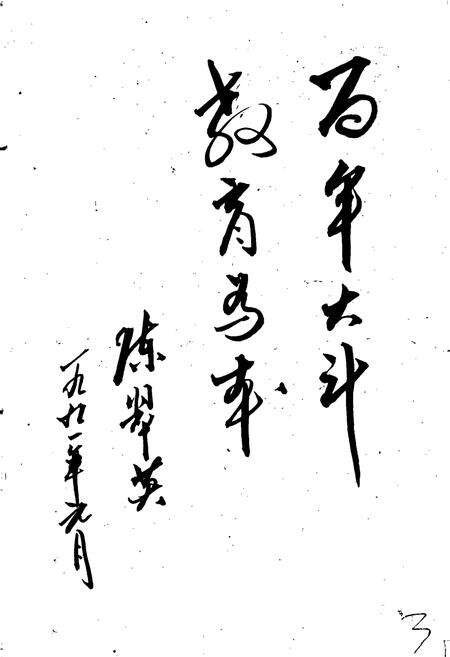 百年大计
教育为本
陈翠英
一九九一年元月
3